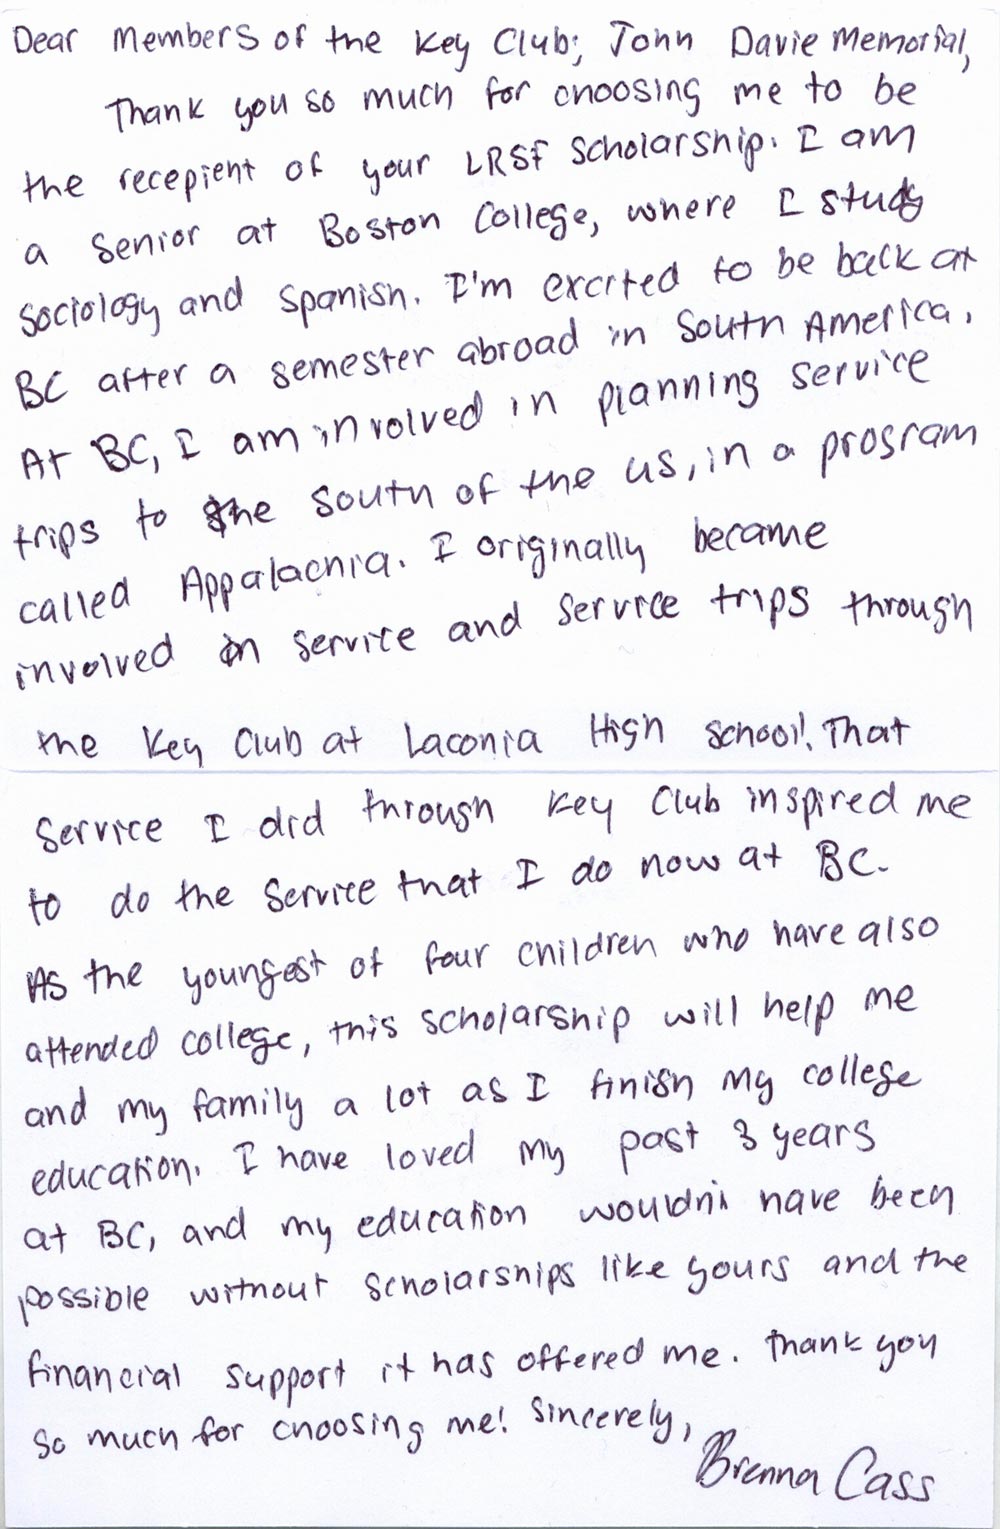 Dear Members of the Key Club; John Davie Memorial,
Thank you so much for choosing me to be
the recepient of your LRSF scholarship. I am
a senior at Boston College, where I study
sociology and spanish. I'm excited to be back at
BC after a semester abroad in South America.
At BC, I am involved in planning service
trips to the South of the US, in a program
called Appalachia. I originally became
involved in service and service trips through
the Key Club at Laconia High School! That
service I did through Key Club inspired me
to do the service that I do now at BC.
As the youngest of four children who have also
attended college, this scholarship will help me
and my family a lot as I finish my college
education. I have loved my past 3 years
at BC, and my education wouldn't have been
possible without scholarships like yours and the
financial support it has offered me. Thank you
so much for choosing me! Sincerely,
Brenna Cass